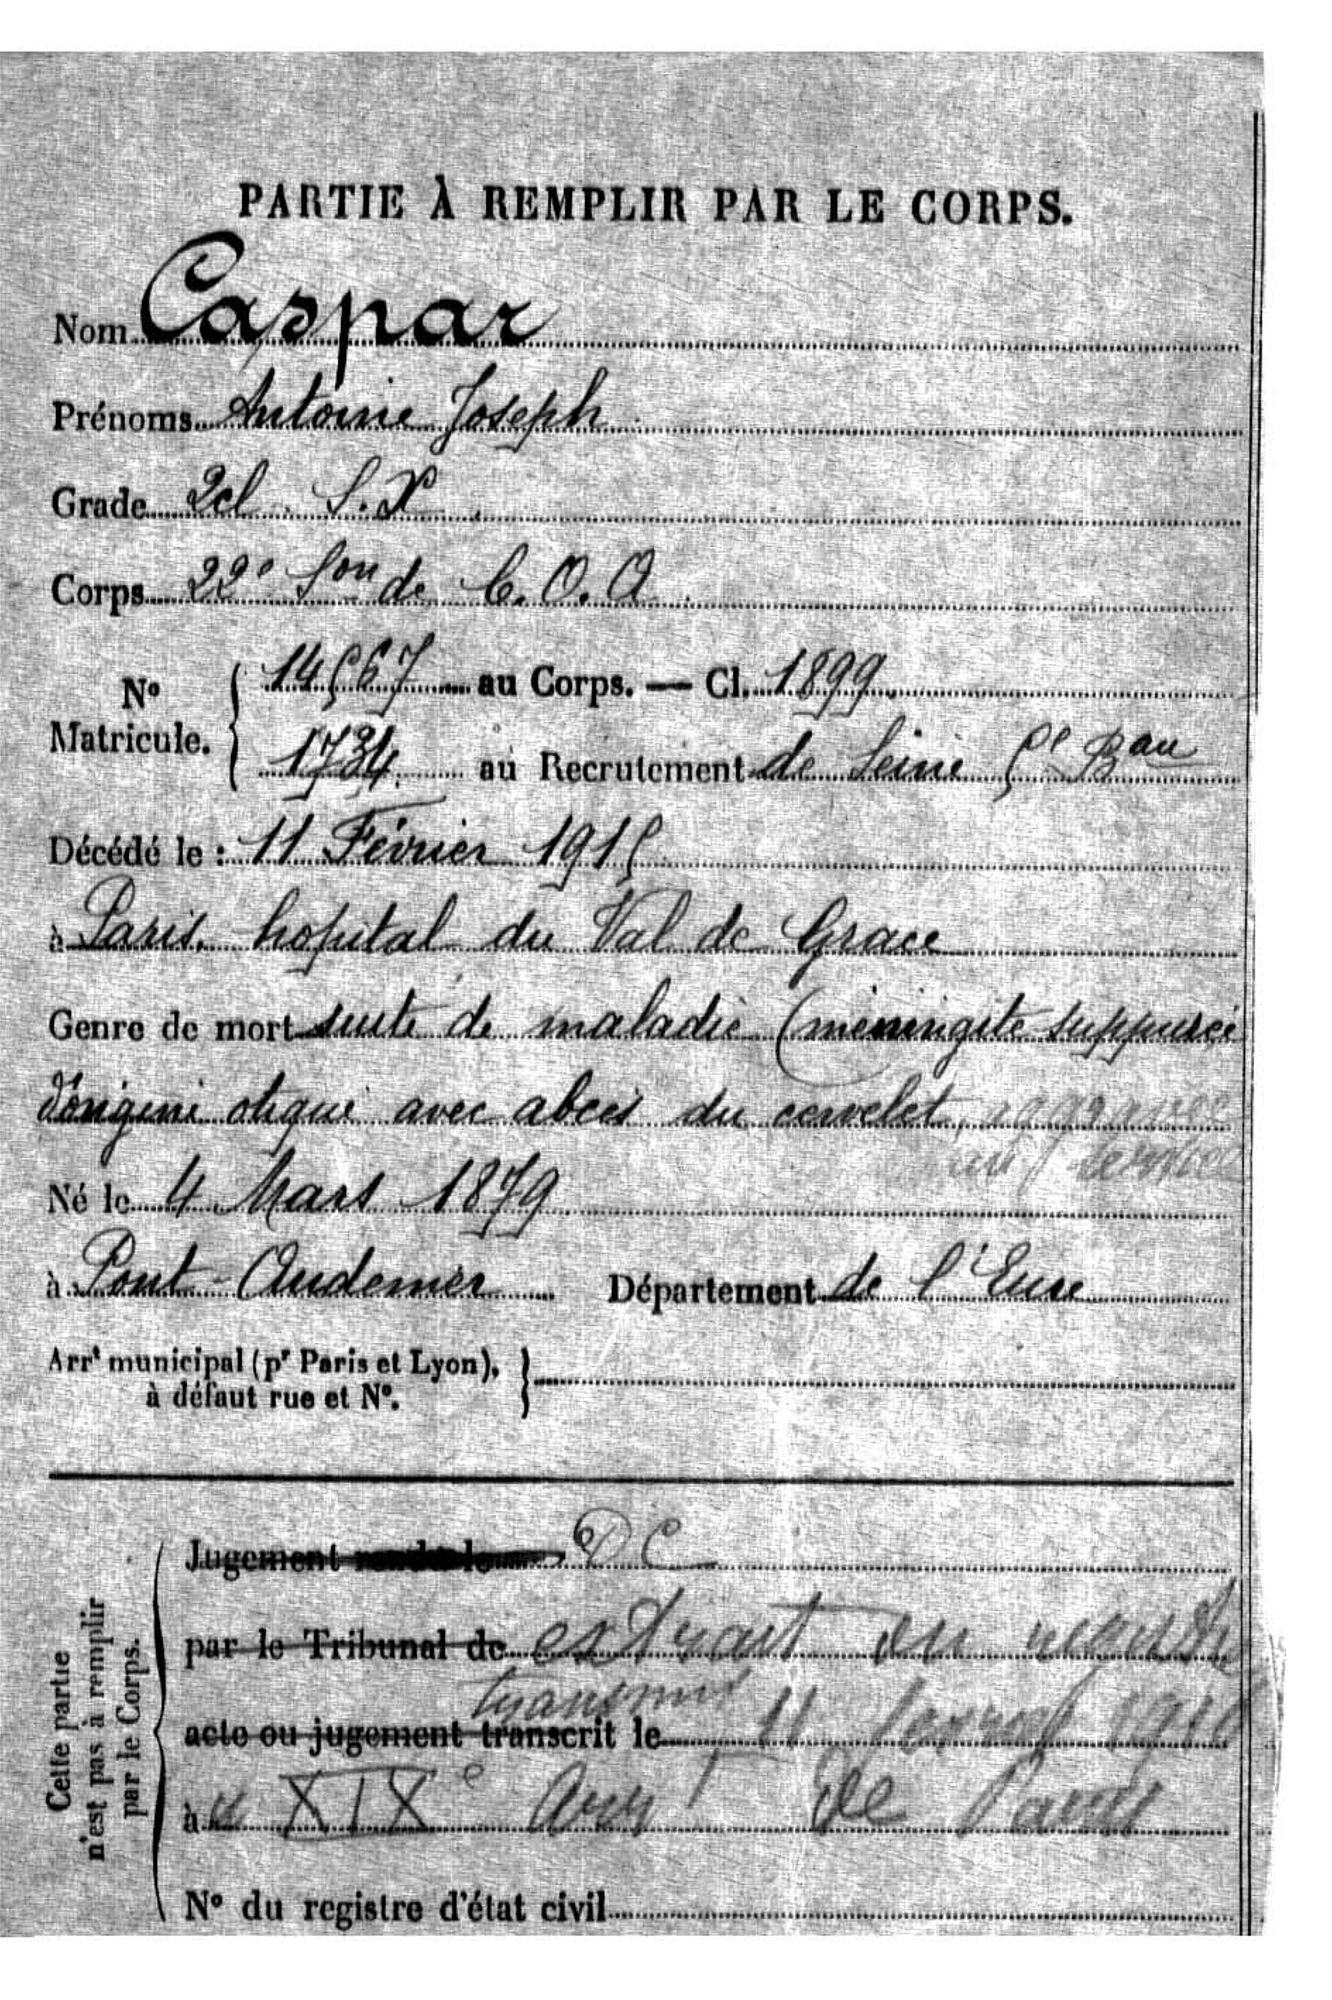 PARTIE À REMPLIR PAR LE CORPS.
Nom Caspar
Prénoms Antoine Joseph
Grade 2cl. S. X.
Corps 22e Son de C.O.A.
No Matricule. 14567 au Corps. — Cl. 1899
1734 au Recrutement de Seine 5e Bau
Décédé le : 11 Février 1915
à Paris, hopital du Val de Grace
Genre de mort suite de maladie (méningite suppurée
d'origine otique avec abcès du cervelet, aggravée
au service
Né le 4 Mars 1879
à Pont-Audemer Département de l'Eure
Arrt municipal (pr Paris et Lyon),
à défaut rue et No.
Cette partie
n'est pas à remplir
par le Corps.
Jugement DC
par le Tribunal de extrait du registre
transmis
acte ou jugement transcrit le 11
à XIXe Arrt de Paris
No du registre d'état civil